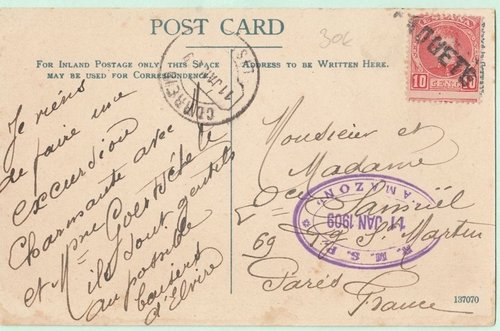 POST CARD
FOR INLAND POSTAGE ONLY THIS SPACE
MAY BE USED FOR CORRESPONDENCE.
ADDRESS TO BE WRITTEN HERE.
30k
CORREOS
11 JAN
ESPAÑA
10 CENT. 10
PAQUETE
Je viens
de faire une
excursion
charmante avec
et Mme
ils sont gentils
au possible
baisers
d'Elvire
Monsieur et
Madame
69 Bg St Martin
Paris
France
R. M. S. P.
AMAZON
11 JAN 1909
137070